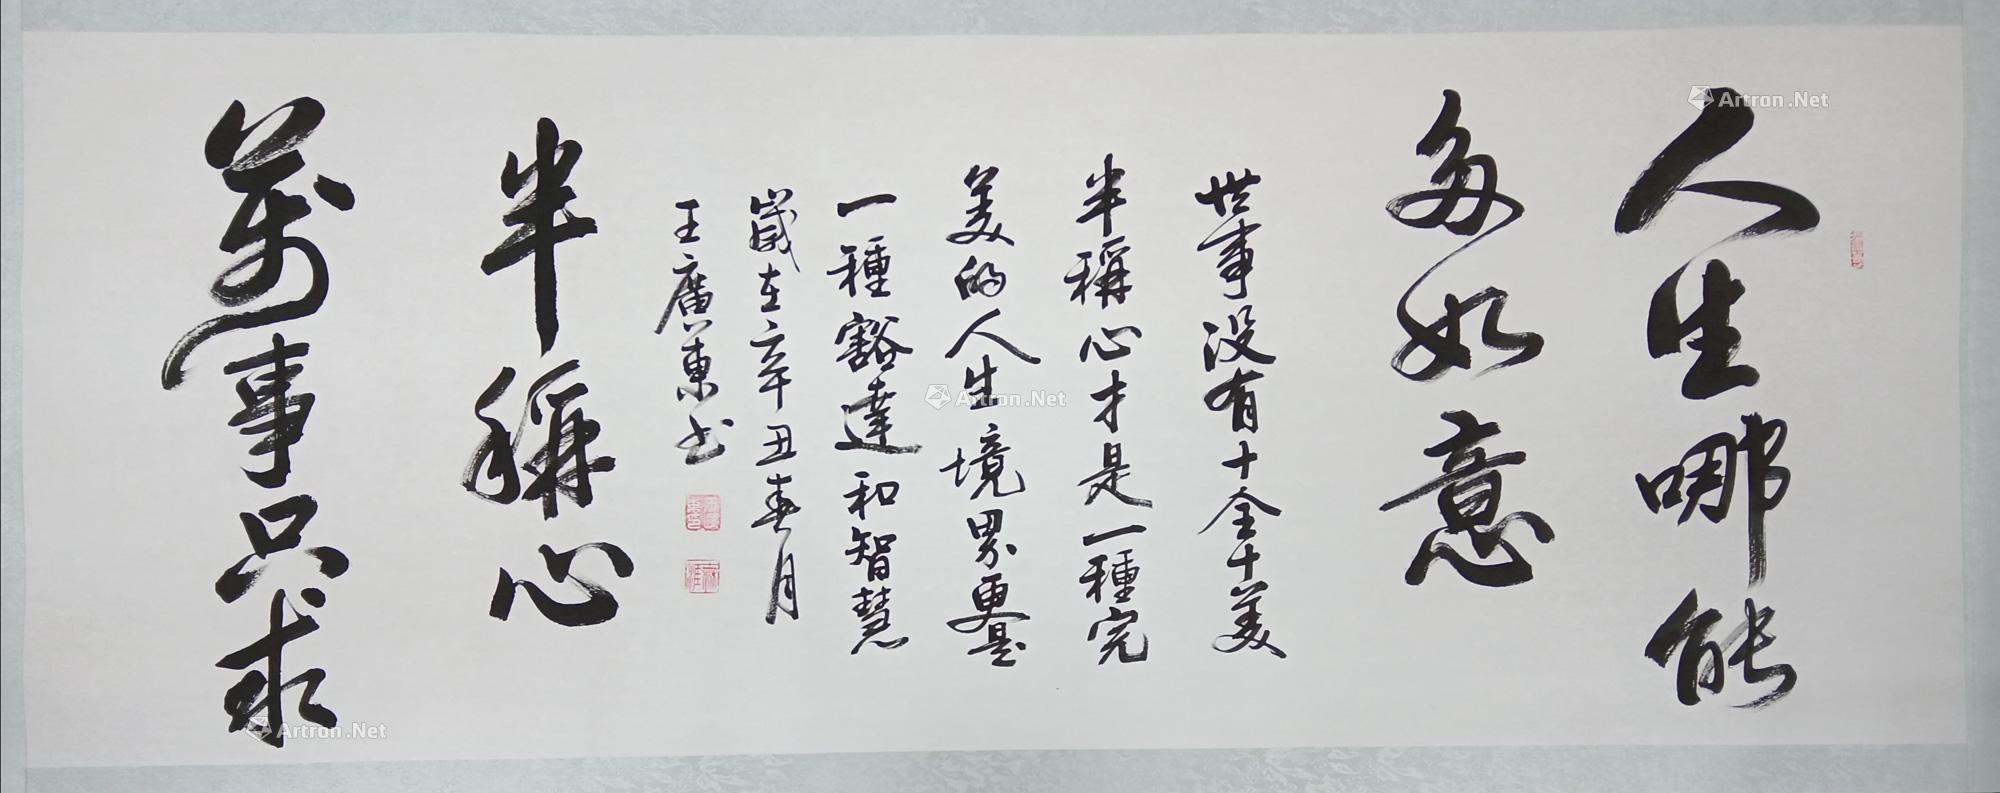 人生哪能
多如意
萬事只求
半稱心
世事没有十全十美
半稱心才是一種完
美的人生境界更是
一種豁達和智慧
歲在辛丑春月
王廣東书
Artron.Net
Artron.Net
Artron.Net